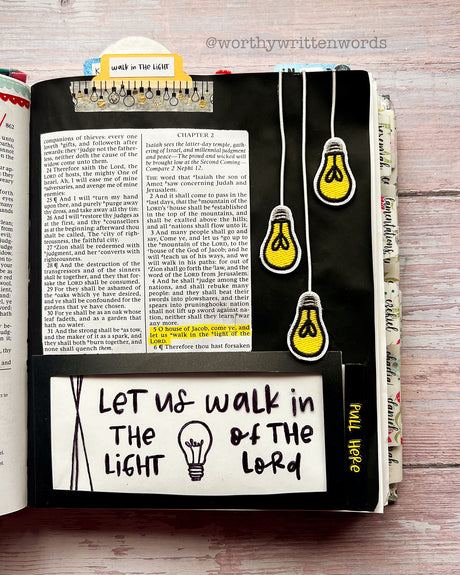 @worthywrittenwords
walk in THE LIGHT
862
companions of thieves: every one
loveth *gifts, and followeth after
rewards; they *judge not the father-
less, neither doth the cause of the
widow come unto them.
24 Therefore saith the Lord, the
LORD of hosts, the mighty One of
Israel, Ah, I will ease me of mine
adversaries, and avenge me of mine
enemies:
25 ¶ And I will *turn my hand
upon thee, and purely *purge away
thy dross, and take away all thy tin:
26 And I will *restore thy judges as
at the first, and thy *counsellors
as at the beginning: afterward thou
shalt be called, The *city of right-
eousness, the faithful city.
27 *Zion shall be redeemed with
*judgment, and her *converts with
*righteousness.
28 ¶ And the destruction of the
transgressors and of the sinners
shall be together, and they that for-
sake the LORD shall be consumed.
29 For they shall be ashamed of
the *oaks which ye have desired,
and ye shall be confounded for the
gardens that ye have chosen.
30 For ye shall be as an oak whose
leaf fadeth, and as a garden that
hath no water.
31 And the strong shall be *as tow,
and the maker of it as a spark, and
they shall both *burn together, and
none shall quench them.
CHAPTER 2
Isaiah sees the latter-day temple, gath-
ering of Israel, and millennial judgment
and peace—The proud and wicked will
be brought low at the Second Coming—
Compare 2 Nephi 12.
THE word that *Isaiah the son of
Amoz *saw concerning Judah and
Jerusalem.
2 And it shall come to pass in the
*last days, that the *mountain of the
LORD's *house shall be *established
in the top of the mountains, and
shall be exalted above the hills;
and all *nations shall flow unto it.
3 And many people shall go and
say, Come ye, and let us go up to
the *mountain of the LORD, to the
house of the God of Jacob; and he
will *teach us of his ways, and we
will walk in his paths: for out of
*Zion shall go forth the *law, and the
word of the LORD from Jerusalem.
4 And he shall *judge among the
nations, and shall rebuke many
people: and they shall beat their
swords into plowshares, and their
spears into pruninghooks: nation
shall not lift up sword against na-
tion, neither shall they learn *war
any more.
5 O house of Jacob, come ye, and
let us *walk in the *light of the
LORD.
6 ¶ Therefore thou hast forsaken
LET US walk in
THE of THE
LIGHT LORD
PULL HERE
Jeremiah
lamentations
ezekiel
daniel